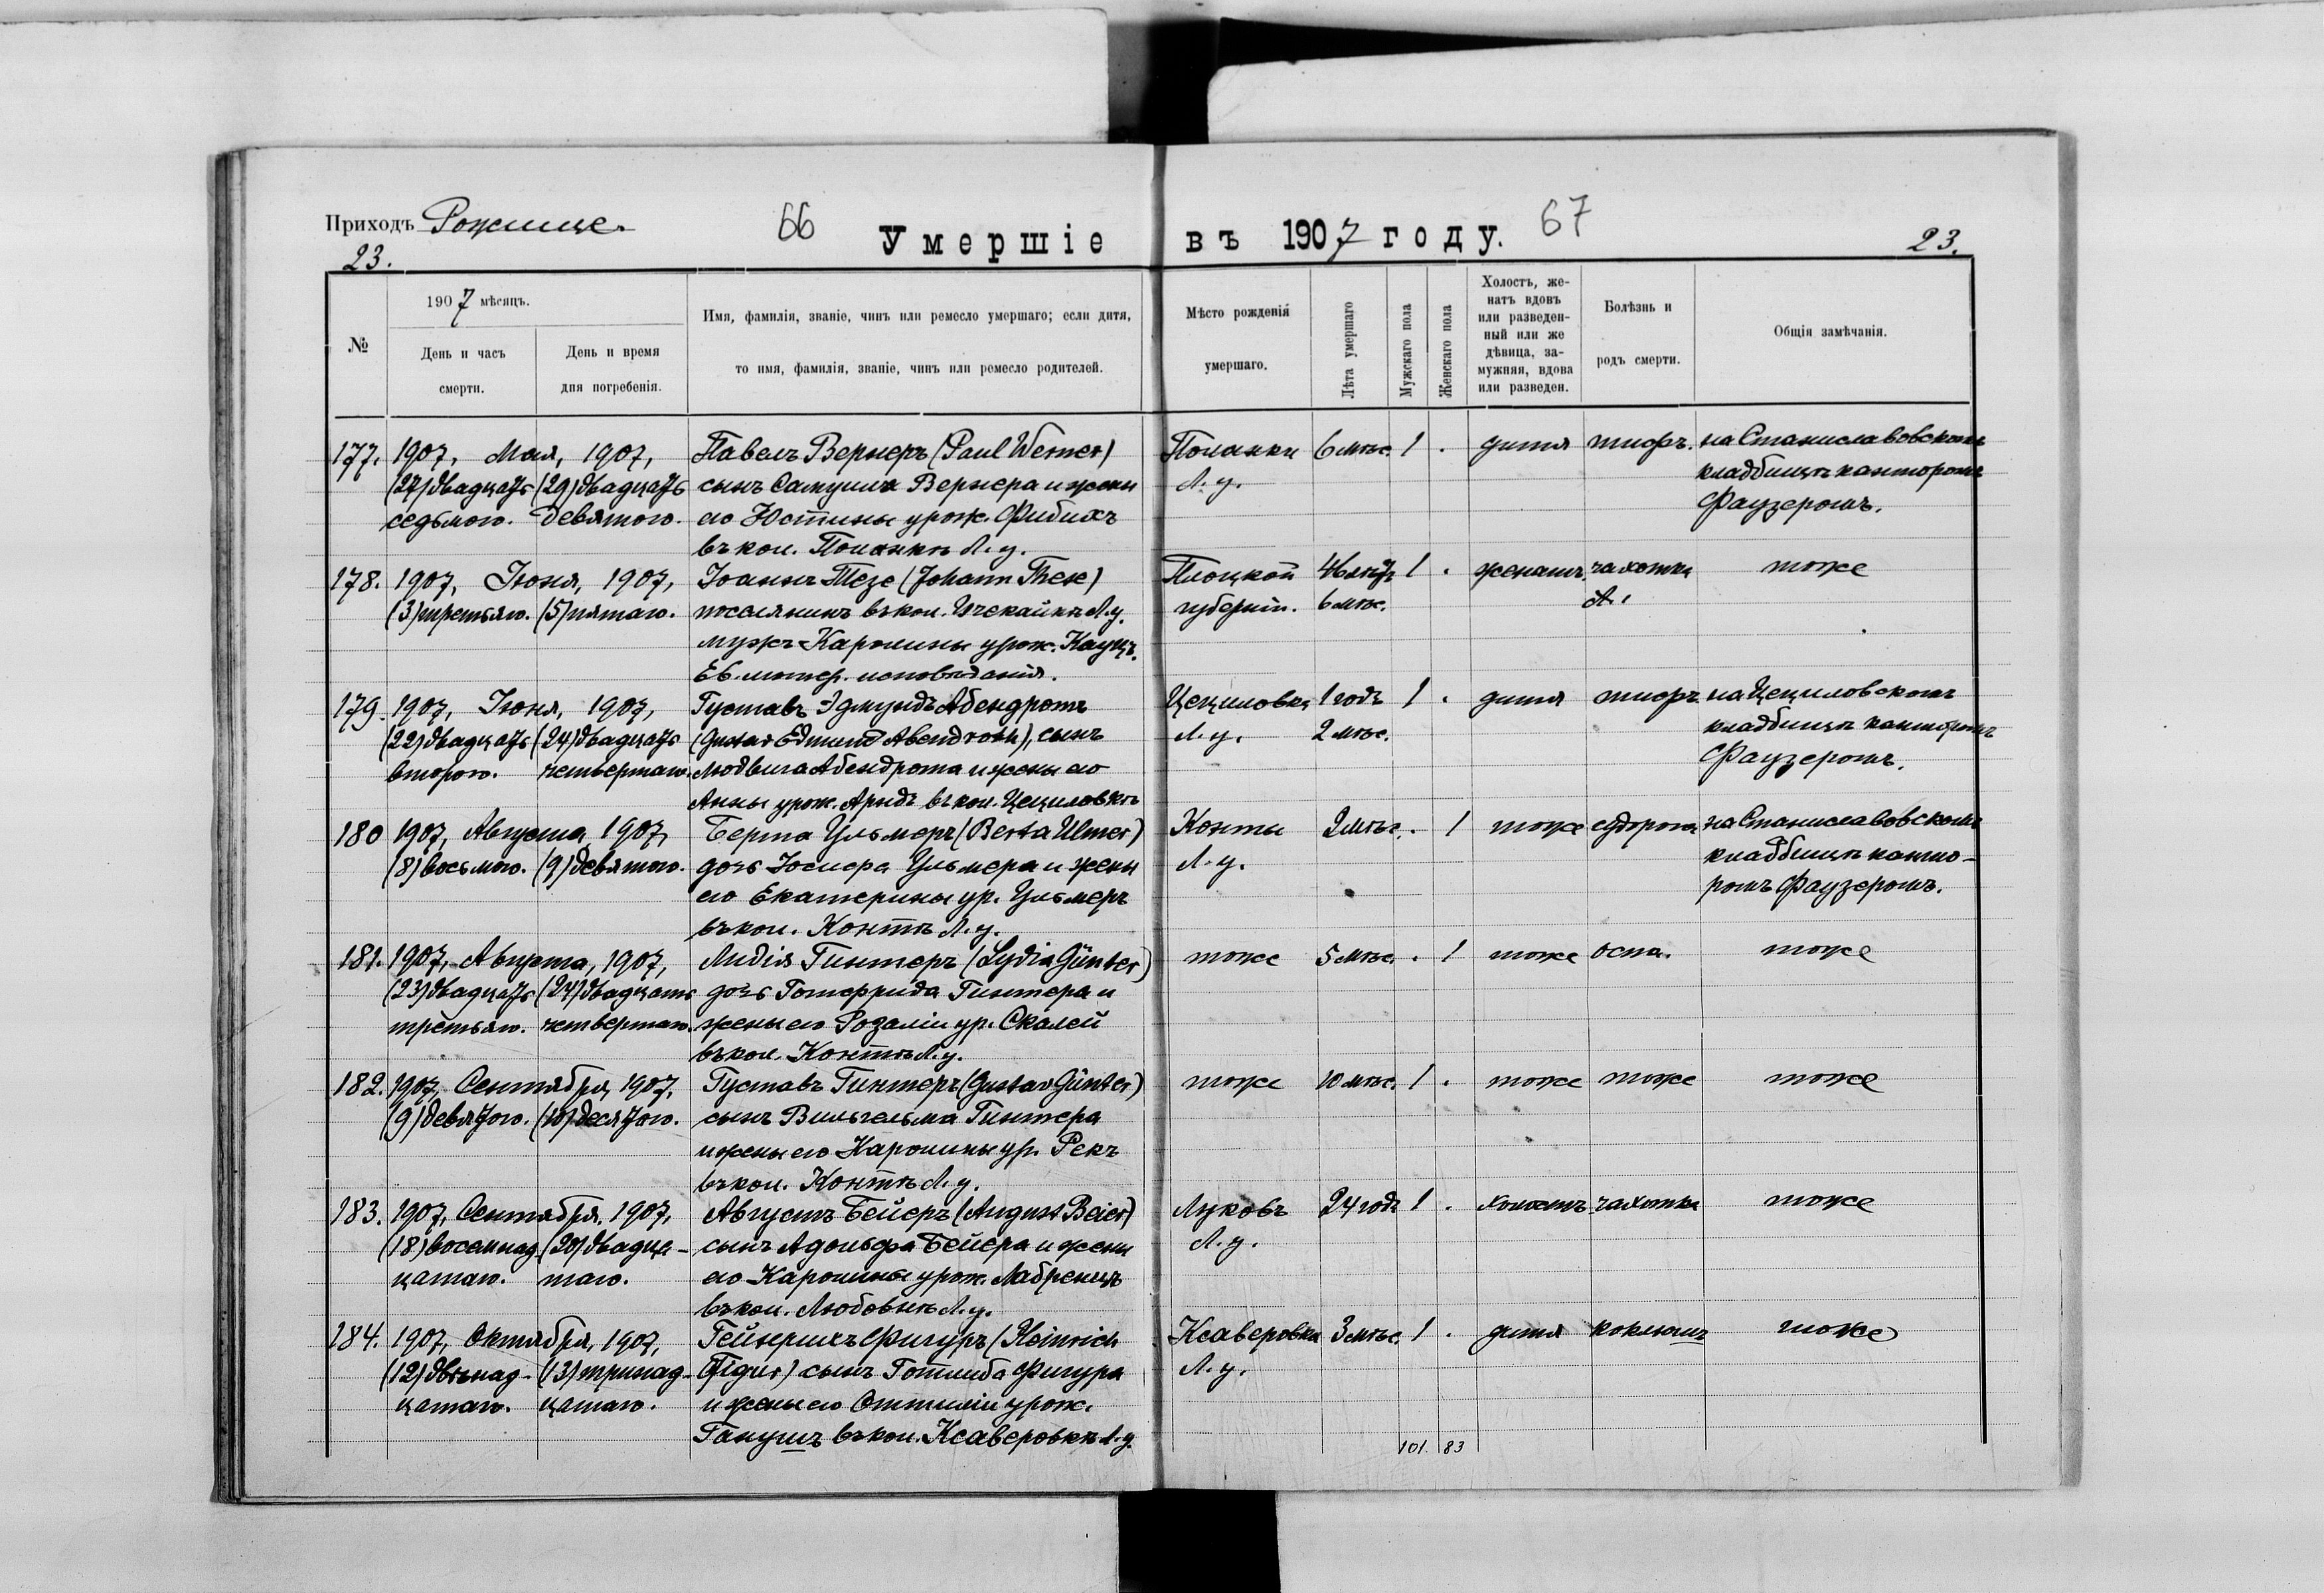 Приходъ Рожище.
66
Умершіе
въ 1907 году.
67
23.
23.
№
1907 мѣсяцъ.
День и часъ
смерти.
День и время
дня погребенія.
Имя, фамилія, званіе, чинъ или ремесло умершаго; если дитя,
то имя, фамилія, званіе, чинъ или ремесло родителей.
Мѣсто рожденія
умершаго.
Лѣта умершаго
Мужскаго пола
Женскаго пола
Холостъ, же-
натъ вдовъ
или разведен-
ный или же
дѣвица, за-
мужняя, вдова
или разведен.
Болѣзнь и
родъ смерти.
Общія замѣчанія.
177. 1907, Мая, 1907, Павелъ Вернеръ (Paul Werner) Поланки 6 мѣс. 1 . дитя тифъ. на Станиславовскомъ
(27) двадцать (29) двадцать сынъ Самуила Вернера и жены Л. у. кладбищѣ канторомъ
седьмого. девятого. его Юстины урож. Фибихъ Фаузеромъ.
въ кол. Поланкѣ Л. у.
178. 1907, Іюня, 1907, Іоаннъ Тезе (Johann These) Плоцкой 46 лѣтъ 1 . женатъ. чахотка тоже
(3) третьяго. (5) пятаго. поселянинъ въ кол. Ичекайкѣ Л. у. губерніи. 6 мѣс.
мужъ Каролины урож. Кауцъ.
Ев. лютер. исповѣданія.
179. 1907, Іюня, 1907, Густавъ Эдмундъ Абендротъ Цециловка 1 годъ 1 . дитя тифъ на Цециловскомъ
(22) двадцать (24) двадцать (Gustav Edmund Abendroth), сынъ Л. у. 2 мѣс. кладбищѣ канторомъ
второго. четвертаго. Людвига Абендрота и жены его Фаузеромъ.
Анны урож. Арндъ въ кол. Цециловкѣ
180 1907, Августа, 1907, Берта Ульмеръ (Berta Ulmer) Конты 2 мѣс. . 1 тоже судорога на Станиславовскомъ
(8) восьмого. (9) девятого. дочь Юсифа Ульмера и жены Л. у. кладбищѣ канто-
его Екатерины ур. Ульмеръ ромъ Фаузеромъ.
въ кол. Контѣ Л. у.
181. 1907, Августа, 1907, Лидія Гинтеръ (Lydia Günter) тоже 5 мѣс. . 1 тоже оспа. тоже
(23) двадцать (24) двадцать дочь Готфрида Гинтера и
третьяго. четвертаго. жены его Розаліи ур. Скалей
въ кол. Контѣ Л. у.
182. 1907, Сентября, 1907, Густавъ Гинтеръ (Gustav Günter) тоже 10 мѣс. 1 . тоже тоже тоже
(9) девятого. (10) десятого. сынъ Вильгельма Гинтера
и жены его Каролины ур. Рекъ
въ кол. Контѣ Л. у.
183. 1907, Сентября, 1907, Августъ Бейеръ (August Beier) Луковъ 24 года 1 . холостъ чахотка тоже
(18) восемнад- (20) двадца- сынъ Адольфа Бейера и жены Л. у.
цатаго. таго. его Каролины урож. Лабренцъ
въ кол. Любовкѣ Л. у.
184. 1907, Октября, 1907, Гейнрихъ Фигуръ (Heinrich Ксаверовка 3 мѣс. 1 . дитя коклюшъ тоже
(12) двѣнад- (13) тринад- Figur) сынъ Готлиба Фигура Л. у.
цатаго. цатаго. и жены его Оттиліи урож.
Ганушъ въ кол. Ксаверовкѣ Л. у.
101. 83